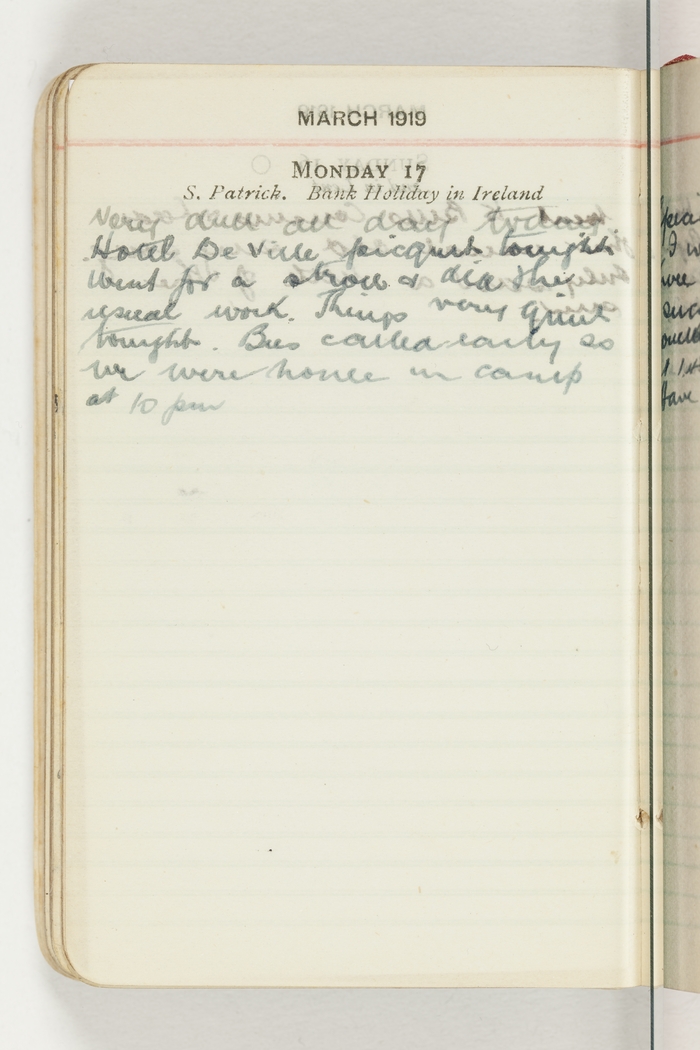 MARCH 1919
MONDAY 17
S. Patrick. Bank Holiday in Ireland
Very dull all day today
Hotel De Ville picquet tonight
went for a stroll & did the
usual work. Things very quiet
tonight. Bus called early so
we were home in camp
at 10 pm